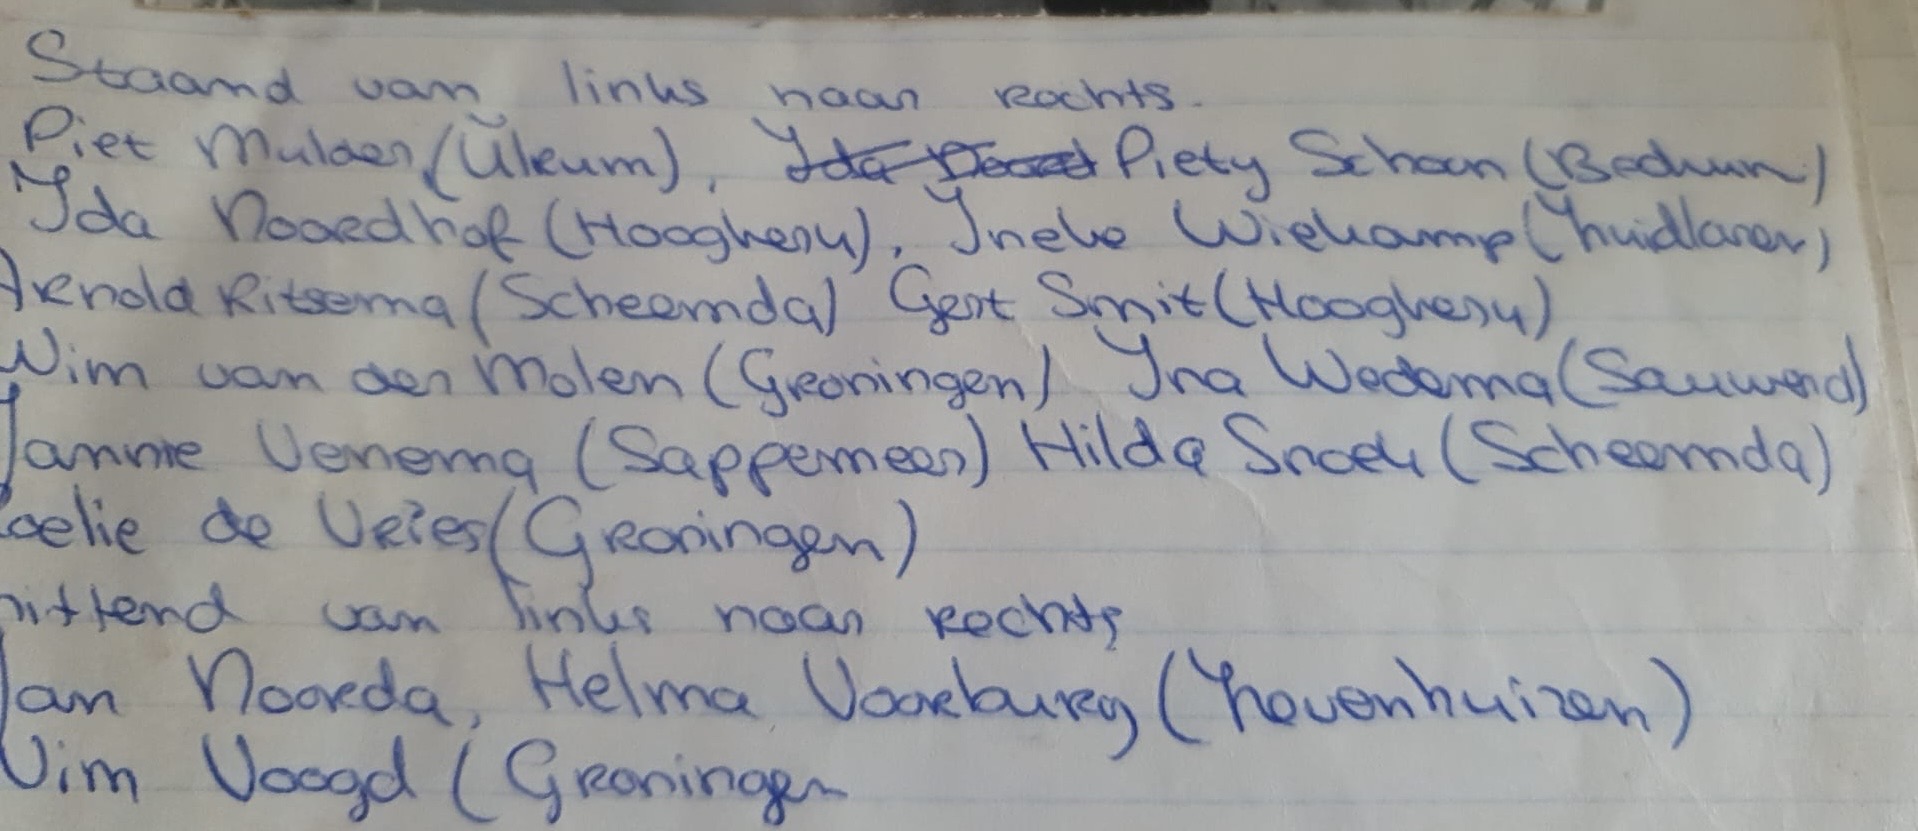 Staand van links naar rechts.
Piet Mulder (Ulrum), Ida Piety Schoan (Bedum)
Ida Noordhof (Hooghesu), Ineke Wiekamp (Zuidlaren)
Arenold Ritsema (Scheemda) Gert Smit (Hooghesu)
Wim van der Molen (Groningen) Ina Wedema (Sauwerd)
Jannie Venema (Sappemeer) Hilda Snoek (Scheemda)
oelie de Vries (Groningen)
zittend van links naar rechts
Jan Noorda, Helma Voorburg (Zevenhuizen)
Wim Voogd (Groningen